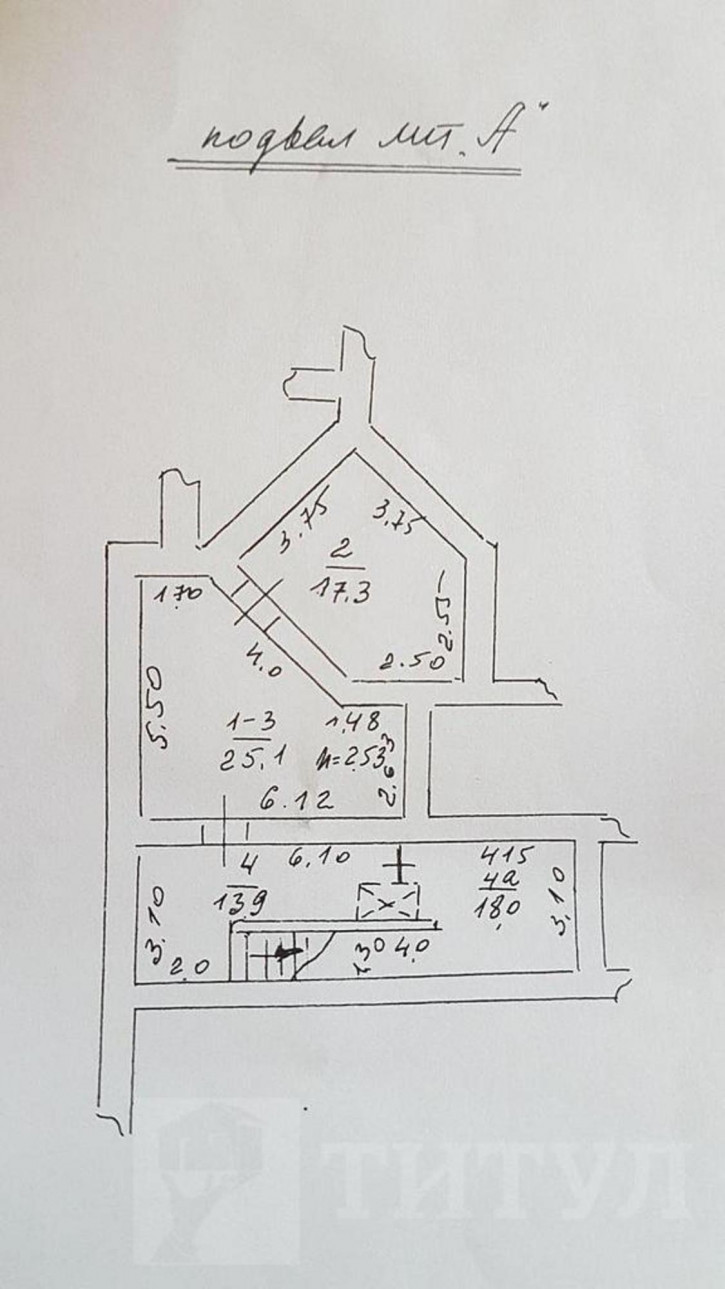 подвал лит. „А"
3.75
3.75
2
17.3
1.70
2.55
2.50
4.0
5.50
1-3
25.1
1.48
h=2.53
2.63
6.12
4
13.9
6.10
415
4а
18.0
3.10
3.10
2.0
4.0
ТИТУЛ